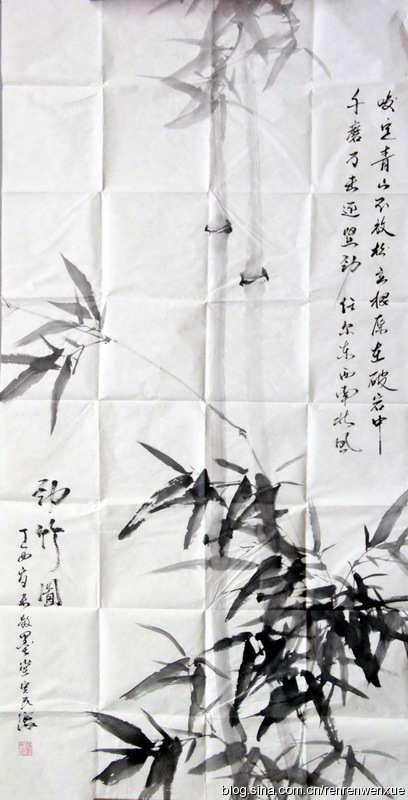 blog.sina.com.cn/renrenwenxue
咬定青山不放松立根原在破岩中
千磨万击还坚劲任尔东西南北风
劲竹圖
丁酉
blog.sina.com.cn/renrenwenxue